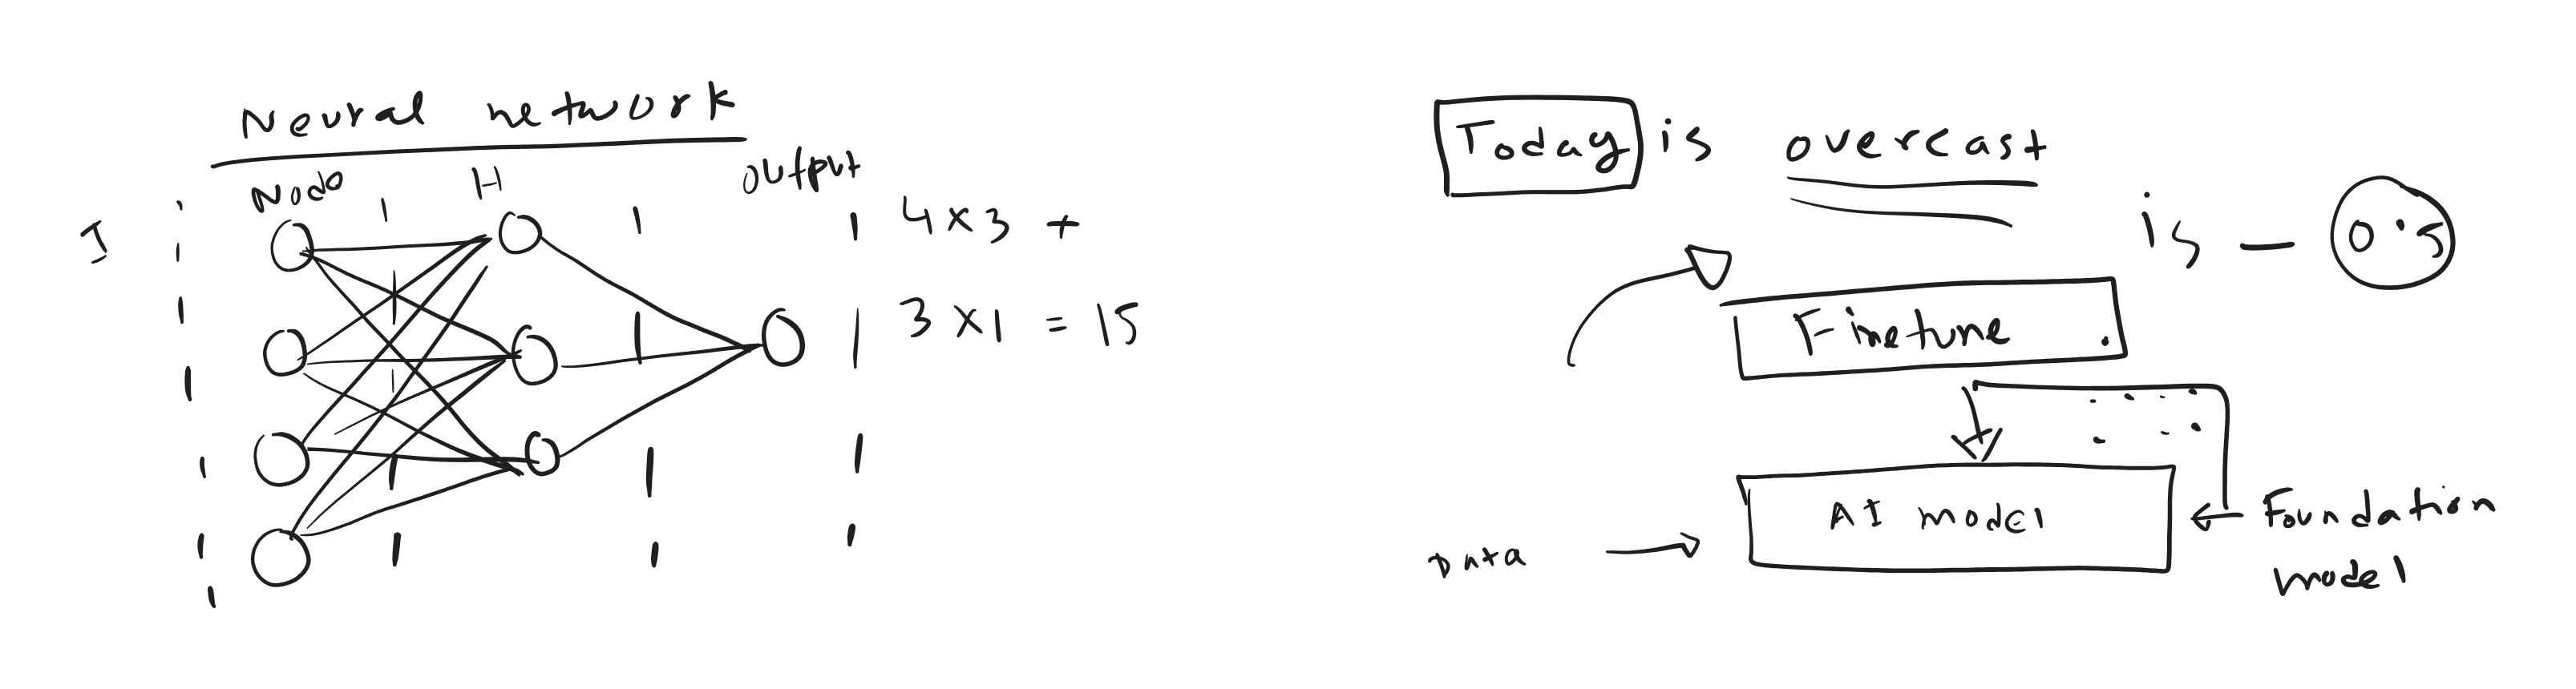 Neural network
I Node H output
4 x 3 +
3 x 1 = 15
Today is overcast
is – 0.5
Finetune
AI model
Data
Foundation
model